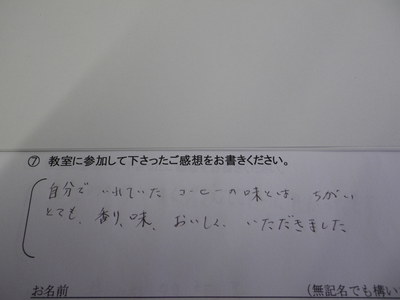 ⑦ 教室に参加して下さったご感想をお書きください。
自分で いれていた コーヒーの味とは、ちがい
とても、香り、味、おいしく、いただきました
お名前 (無記名でも構い